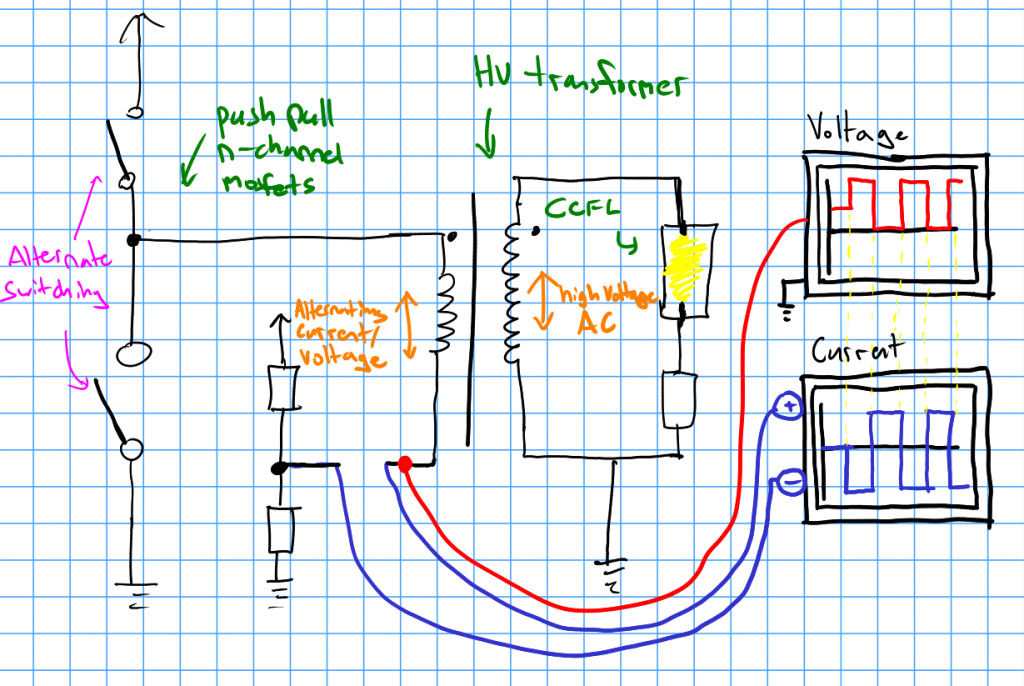 HV transformer
push pull
n-channel
mosfets
Voltage
CCFL
Alternate
Switching
Alternating
Current/
Voltage
high Voltage
AC
Current
+
-